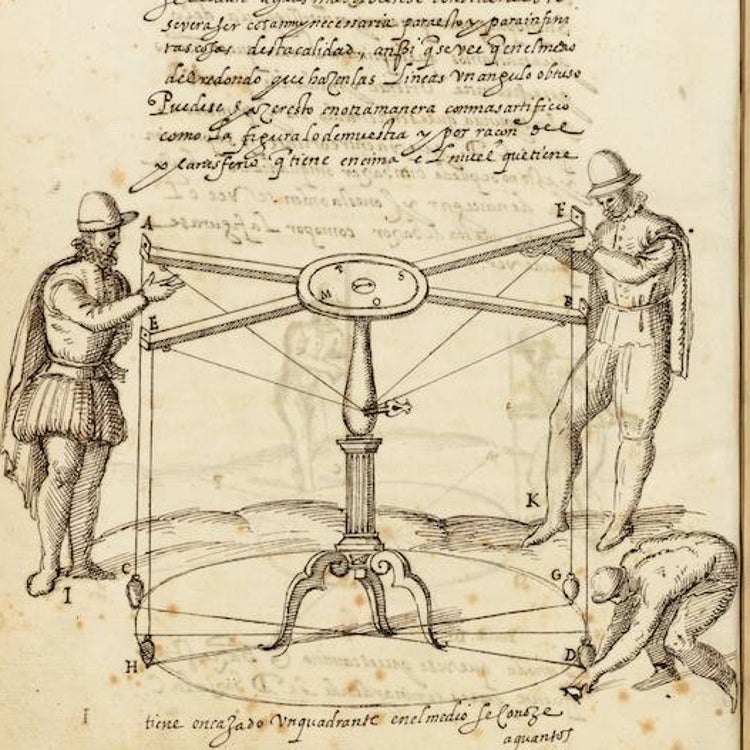 severa ser cosa muy necessaria para esto y para infini
tas cosas desta calidad, anssi q̃ se vee q̃ en el medio
del redondo que hazen las lineas vn angulo obtuso
Puedese hazer esto en otra manera con mas artificio
como la figura lo demuestra y por racon del
q̃ tiene encima el nivel que tiene
A
F
P
S
M
O
E
B
K
C
G
I
H
D
tiene encaxado vn quadrante en el medio se conoze
aquantos